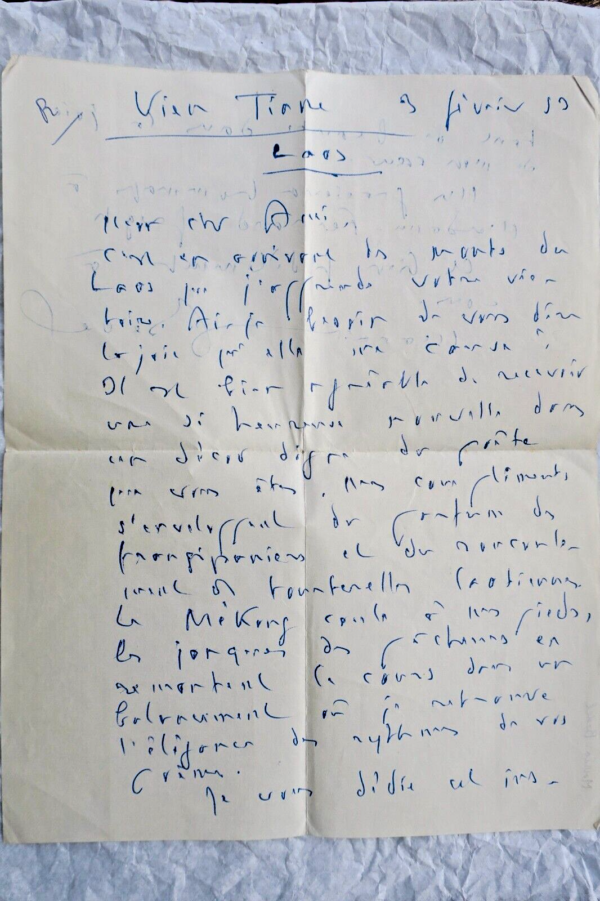 Vien Tiane 3 février 53
Laos
Mon cher Ami
C'est en arrivant des monts du
Laos que j'apprends votre vic-
toire. Ai-je besoin de vous dire
la joie qu'elle me cause !
Il est bien agréable de recevoir
une si heureuse nouvelle dans
un décor digne du poète
que vous êtes, mes compliments
s'enveloppent du parfum des
frangipaniers et du roucoule-
ment de tourterelles laotiennes.
Le Mékong coule à mes pieds,
les jonques des pêcheurs en
remontent le cours dans un
balancement où je retrouve
l'élégance des rythmes de vos
Je vous dédie cet ins-